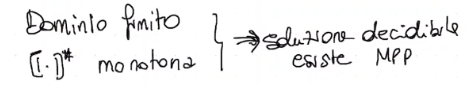 Dominio finito
[[·]]# monotona } ⇒ soluzione decidibile
esiste MPP